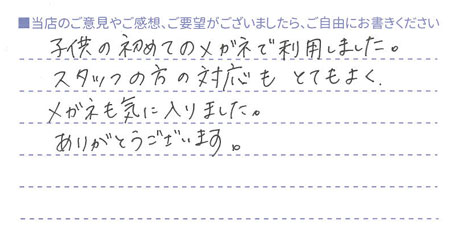 ■当店のご意見やご感想、ご要望がございましたら、ご自由にお書きください
子供の初めてのメガネで利用しました。
スタッフの方の対応も とてもよく、
メガネも気に入りました。
ありがとうございます。